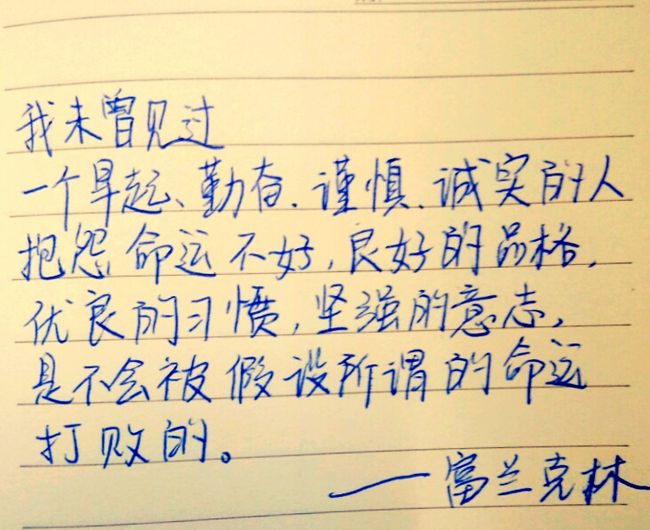 我未曾见过
一个早起、勤奋、谨慎、诚实的人
抱怨命运不好，良好的品格，
优良的习惯，坚强的意志，
是不会被假设所谓的命运
打败的。
——富兰克林